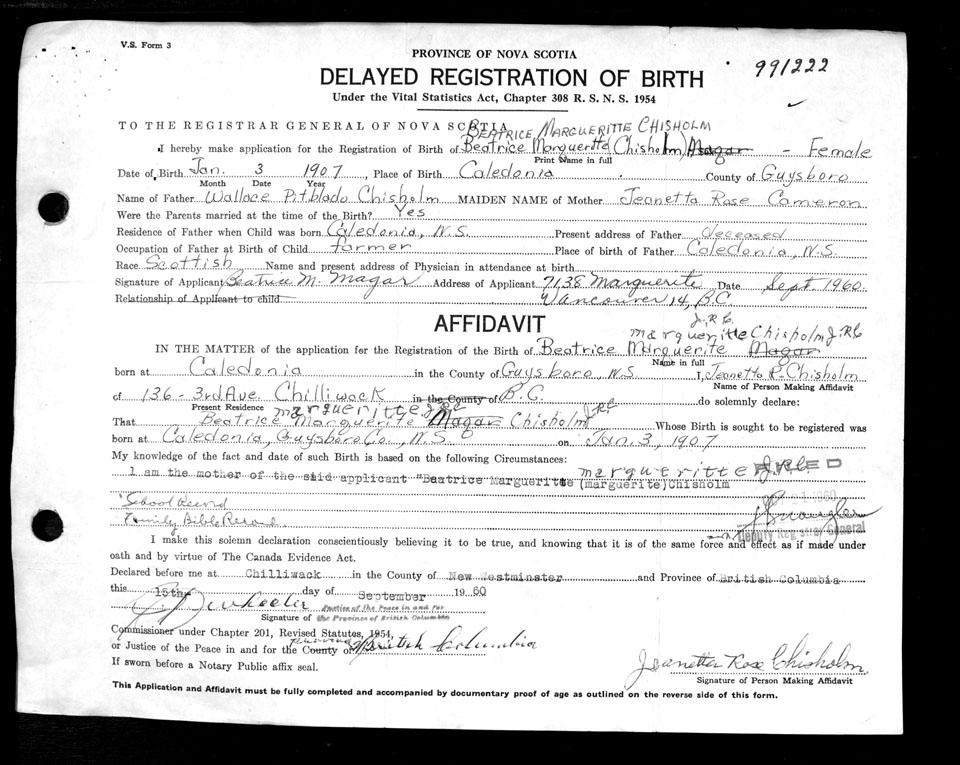 V.S. Form 3
PROVINCE OF NOVA SCOTIA
991222
DELAYED REGISTRATION OF BIRTH
Under the Vital Statistics Act, Chapter 308 R. S. N. S. 1954
TO THE REGISTRAR GENERAL OF NOVA SCOTIA
BEATRICE MARGUERITTE CHISHOLM
I hereby make application for the Registration of Birth of Beatrice Margueritte Chisholm, Magar - Female
Print Name in full
Date of Birth Jan. 3 1907, Place of Birth Caledonia County of Guysboro
Month Date Year
Name of Father Wallace Pitblado Chisholm MAIDEN NAME of Mother Jeanetta Rose Cameron
Were the Parents married at the time of the Birth? Yes
Residence of Father when Child was born Caledonia, N.S. Present address of Father deceased
Occupation of Father at Birth of Child farmer Place of birth of Father Caledonia, N.S.
Race Scottish Name and present address of Physician in attendance at birth
Signature of Applicant Beatrice M. Magar Address of Applicant 7138 Marguerite Date Sept. 1960
Relationship of Applicant to child Vancouver 14, B.C.
J.R.C.
AFFIDAVIT
margueritte Chisholm J.R.C
IN THE MATTER of the application for the Registration of the Birth of Beatrice Marguerite Magar
Name in full
born at Caledonia in the County of Guysboro, N.S. I, Jeanetta R. Chisholm
Name of Person Making Affidavit
of 136 - 3rd Ave Chilliwack in the County of B.C. do solemnly declare:
Present Residence
margueritte J.R.C J.R.C
That Beatrice Marguerite Magar Chisholm Whose Birth is sought to be registered was
born at Caledonia, Guysboro Co., N.S. on Jan. 3, 1907
My knowledge of the fact and date of such Birth is based on the following Circumstances:
margueritte J.R.C.
I am the mother of the said applicant "Beatrice Margueritte (marguerite) Chisholm
School Record
Family Bible Record.
Deputy Registrar General
I make this solemn declaration conscientiously believing it to be true, and knowing that it is of the same force and effect as if made under
oath and by virtue of The Canada Evidence Act.
Declared before me at Chilliwack in the County of New Westminster and Province of British Columbia
this 15th day of September 1960
Wheeler Justice of the Peace in and for
Signature of the Province of British Columbia
Commissioner under Chapter 201, Revised Statutes, 1954,
or Justice of the Peace in and for the County of Province British Columbia
If sworn before a Notary Public affix seal.
Jeanetta Rose Chisholm
Signature of Person Making Affidavit
This Application and Affidavit must be fully completed and accompanied by documentary proof of age as outlined on the reverse side of this form.